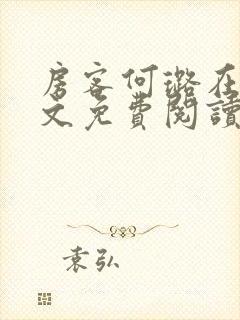 房客何璐在
文免費閱讀
袁弘